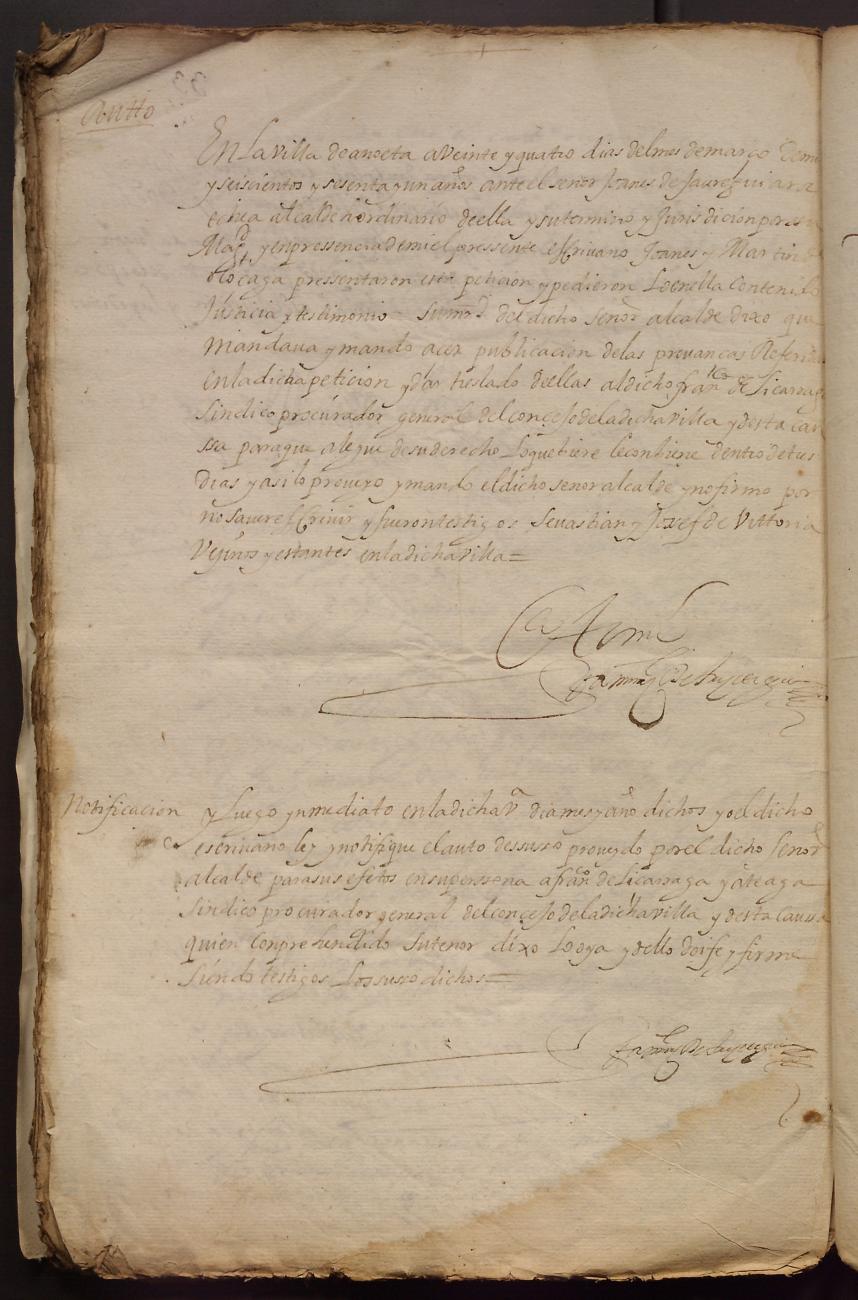 Autto
En la villa de anoeta a Veinte y quatro dias del mes de março de mi
y seiscientos y sesenta y un años ante el señor Joanes de Jauregui
echea alcalde hordinario de ella y su termino y Jurisdicion por su
Magd y en pressencia de mi el pressente escrivano Joanes y Martin
olocaga pressentaron esta peticion y pedieron lo en ella Contenido
Justicia y testimonio = Su md del dicho señor alcalde dixo que
mandava y mando acer publicacion de las provancas Referidas
en la dicha peticion y dar treslado de ellas al dicho franco de Licarraga
sindico procurador general del concejo de la dicha villa y desta cau
ssa para que alegue de su derecho lo que biere le conbiene dentro de tres
dias y asi lo proveyo y mando el dicho señor alcalde y no firmo por
no saver escrivir y fueron testigos Sevastian y Josef de Vittoria
Vezinos y estantes en la dicha villa =
Ante mi
Notificacion y luego ynmediato en la dicha va dia mes y año dichos yo el dicho
escrivano ley y notifique el auto dessusso proveydo por el dicho señor
alcalde para sus efetos en su perssona a franco de Licarraga y ateaga
Sindico procurador general del concejo de la dicha villa y desta Caussa
quien Conprehendido su tenor dixo lo oya y dello doy fe y firme
siendo testigos los suso dichos =